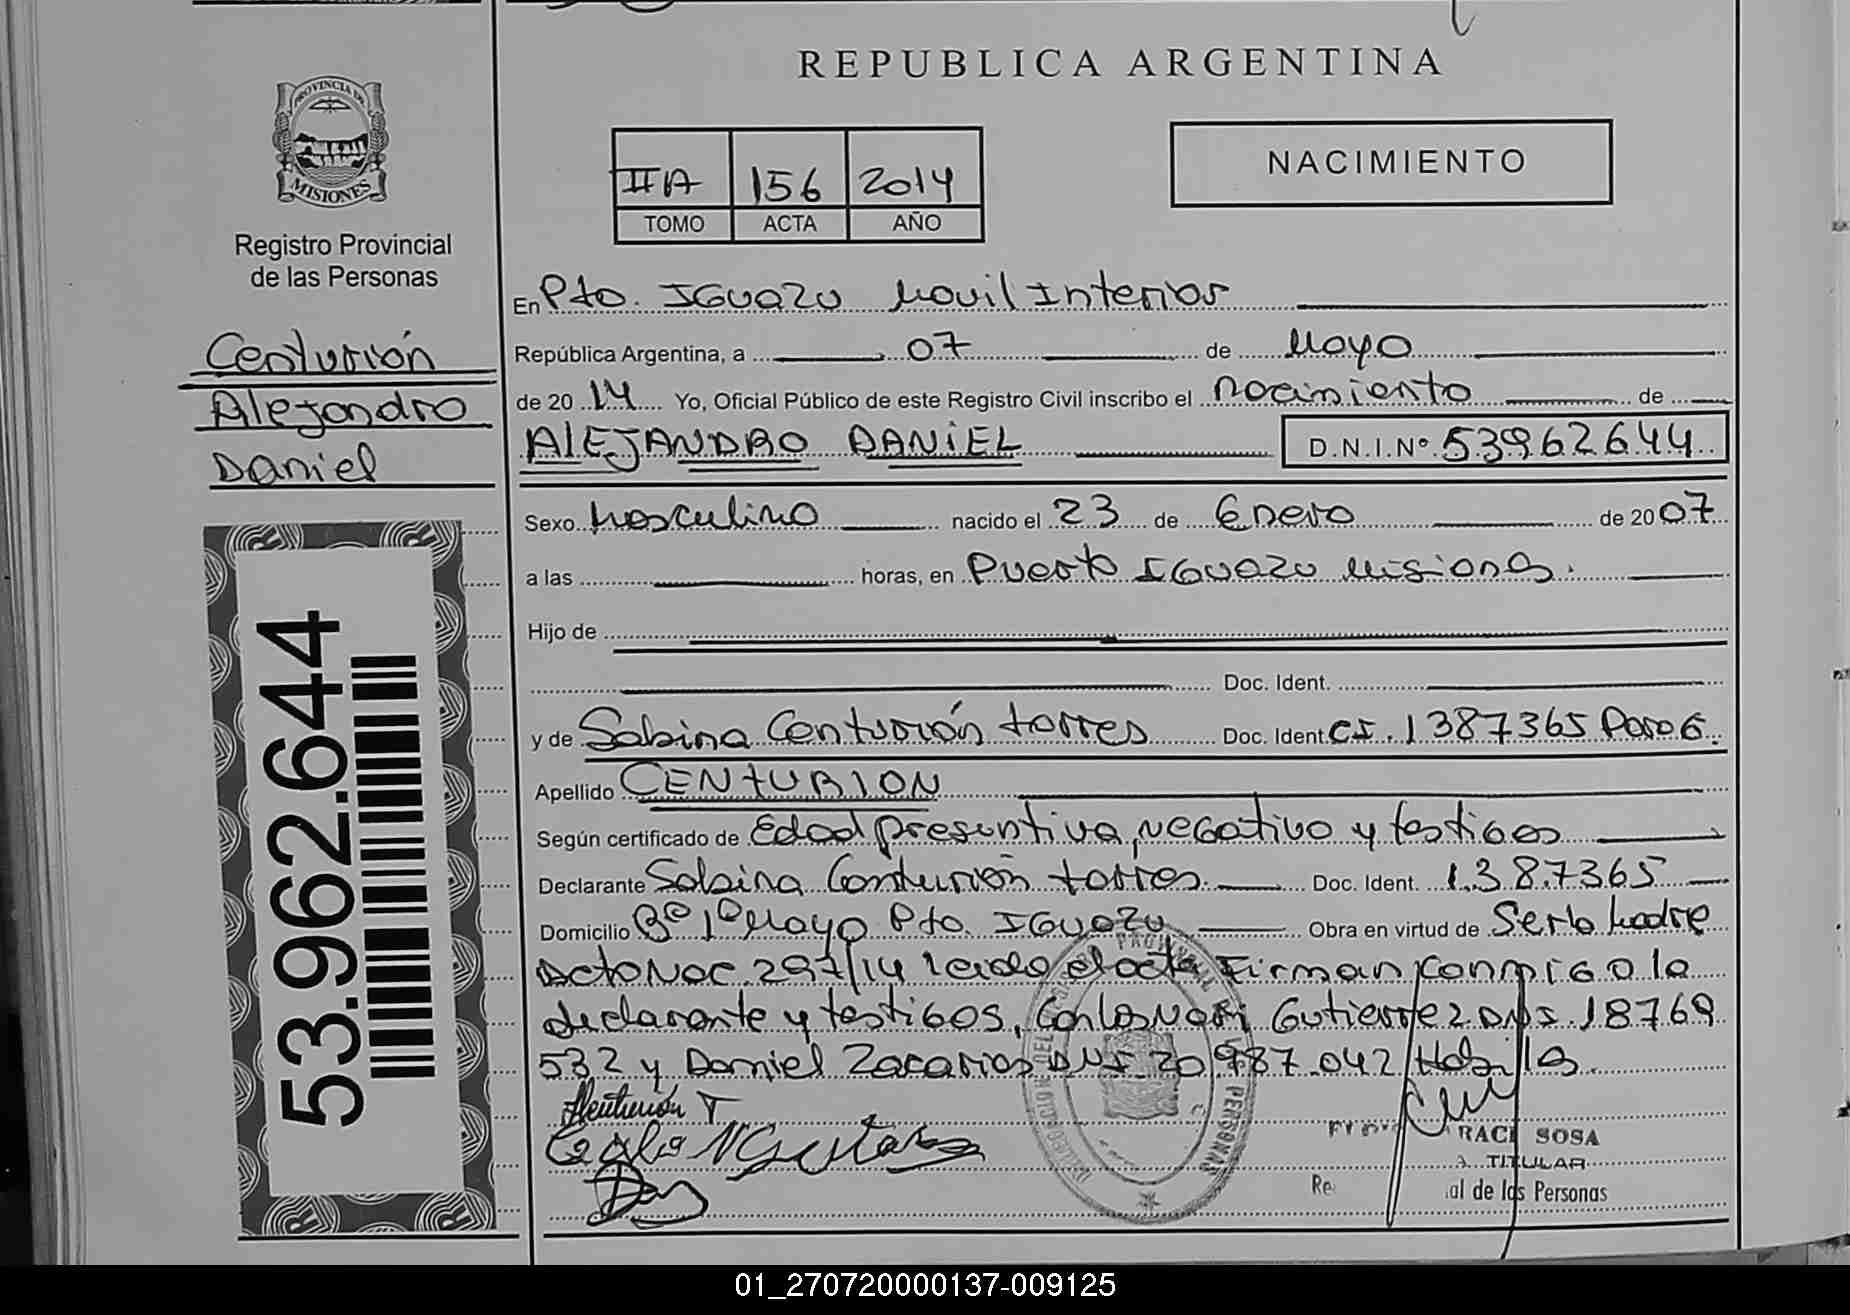 REPUBLICA ARGENTINA
PROVINCIA DE
MISIONES
Registro Provincial
de las Personas
IIA 156 2014
TOMO ACTA AÑO
NACIMIENTO
Centurión
Alejandro
Daniel
53.962.644
En Pto. Iguazu Movil Interior
República Argentina, a 07 de Mayo
de 2014 Yo, Oficial Público de este Registro Civil inscribo el nacimiento de
ALEJANDRO DANIEL D.N.I.Nº 53962644
Sexo Masculino nacido el 23 de Enero de 2007
a las horas, en Puerto Iguazu Misiones.
Hijo de
Doc. Ident.
y de Sabina Centurión torres Doc. Ident. CI. 1387365 Parag.
Apellido CENTURION
Según certificado de Edad presuntiva, negativo y testigos
Declarante Sabina Centurión torres Doc. Ident. 1.387.365
Domicilio Bº 1º Mayo Pto. Iguazu Obra en virtud de Ser la Madre
Dcto Nac. 297/14 leida el acta Firman conmigo la
declarante y testigos, Gutierrez DNI. 18769
532 y Daniel Zacarias DNI 20987.042 Habiles
SOSA
TITULAR
al de las Personas
01_270720000137-009125